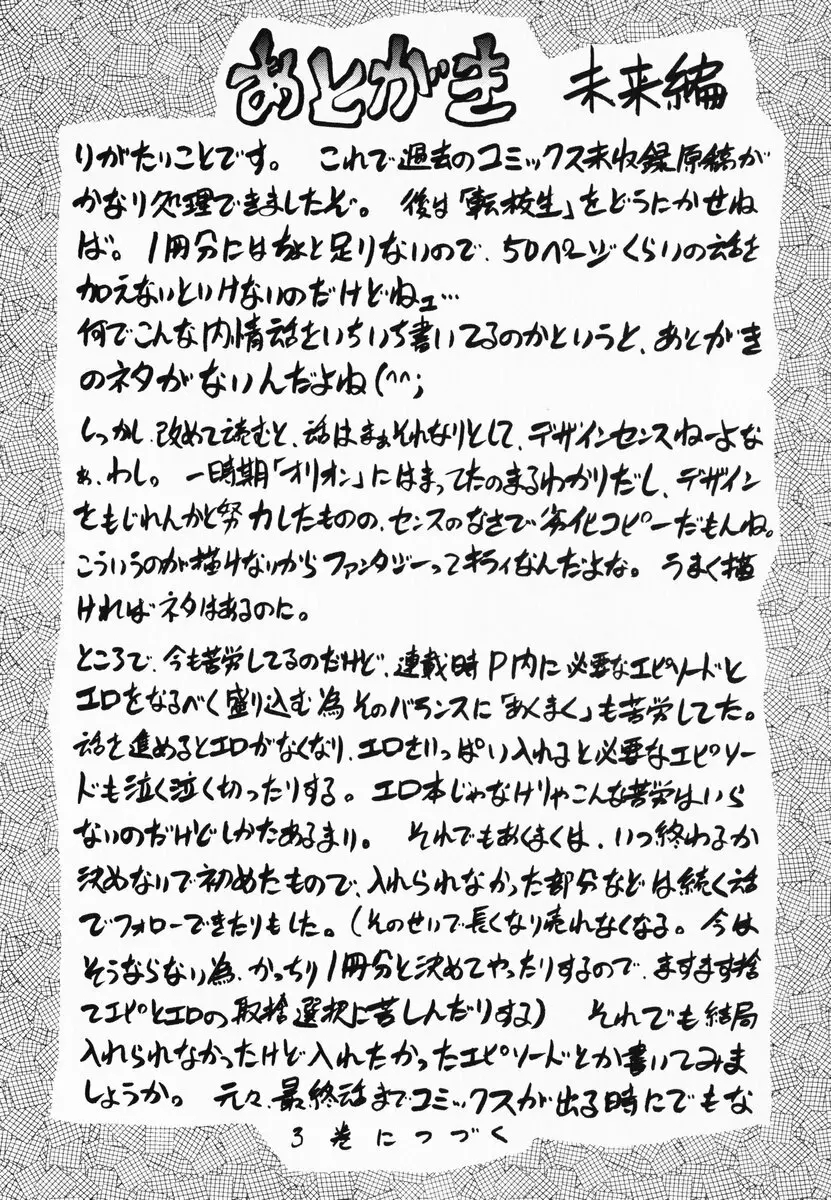 あとがき 未来編
りがたいことです。 これで過去のコミックス未収録原稿が
かなり処理できましたぞ。 後は「転校生」をどうにかせね
ば。1冊分にはちと足りないので、50ページくらいの話を
加えないといけないのだけどねェ…
何でこんな内情話をいちいち書いてるのかというと、あとがき
のネタがないんだよね(^^;
しっかし、改めて読むと、話はまぁそれなりとして、デザインセンスねーよな
ぁ、わし。 一時期「オリオン」にはまってたのまるわかりだし、デザイン
をもじれんかと努力したものの、センスのなさで劣化コピーだもんね。
こういうのが描けないからファンタジーってキライなんだよな。 うまく描
ければネタはあるのに。
ところで、今も苦労してるのだけど、連載時P内に必要なエピソードと
エロをなるべく盛り込む為そのバランスに「あくまく」も苦労してた。
話を進めるとエロがなくなり、エロをいっぱい入れると必要なエピソー
ドも泣く泣く切ったりする。エロ本じゃなけりゃこんな苦労はいら
ないのだけどしかたあるまい。 それでもあくまくは、いつ終わるか
決めないで初めたもので、入れられなかった部分などは続く話
でフォローできたりもした。(そのせいで長くなり売れなくなる。今は
そうならない為、かっちり1冊分と決めてやったりするので、ますます捨
てエピとエロの取捨選択に苦しんだりする) それでも結局
入れられなかったけど入れたかったエピソードとか書いてみま
しょうか。 元々、最終話までコミックスが出る時にでもな
3巻につづく